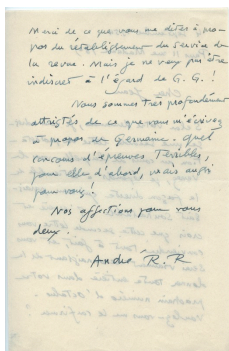 Merci de ce que vous me dites à pro-
pos du rétablissement du service de
la revue. Mais je ne veux pas être
indiscret à l'égard de G. G. !
Nous sommes très profondément
attristés de ce que vous m'écrivez
à propos de Germaine : quel
concours d'épreuves terribles,
pour elle d'abord, mais aussi
pour vous !
Nos affections pour vous
deux.
André R. R